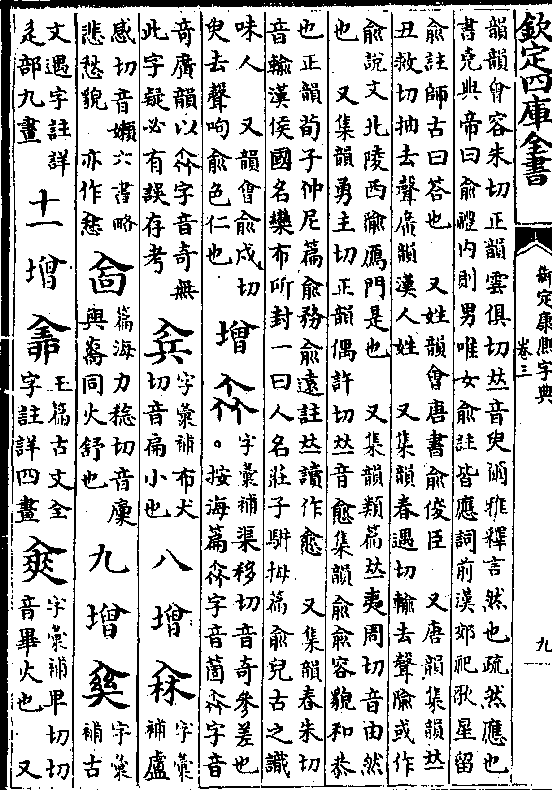 欽定四庫全書
御定康熙字典
卷三
九
韻韻會容朱切正韻雲俱切𠀤音臾爾雅釋言然也疏然應也
書堯典帝曰俞禮內則男唯女俞註皆應詞前漢郊祀歌星留
俞註師古曰荅也 又姓韻會唐書俞俊臣 又唐韻集韻𠀤
丑救切抽去聲廣韻漢人姓 又集韻春遇切輸去聲隃或作
俞說文北陵西隃鴈門是也 又集韻類篇𠀤夷周切音由然
也 又集韻勇主切正韻偶許切𠀤音愈集韻俞俞容貌和恭
也正韻荀子仲尼篇俞務俞遠註𠀤讀作愈 又集韻春朱切
音輸漢侯國名欒布所封一曰人名莊子駢拇篇俞兒古之識
味人 又韻會俞戍切臾去聲呴俞色仁也
增
字彙補渠移切音奇參差也
按海篇𠈌字音箇𠈌字音奇廣韻以𠈌字音奇無
此字疑必有誤存考
字彙補布犬切音扁小也
八增
字彙補盧感切音壈六書略
悲愁貌 亦作愁
篇海力稔切音廩
與㐭同火舒也
九增
字彙補古文遇字註詳
辵部九畫
十一增
玉篇古文全
字註詳四畫
字彙補畢切切
音畢火也 又